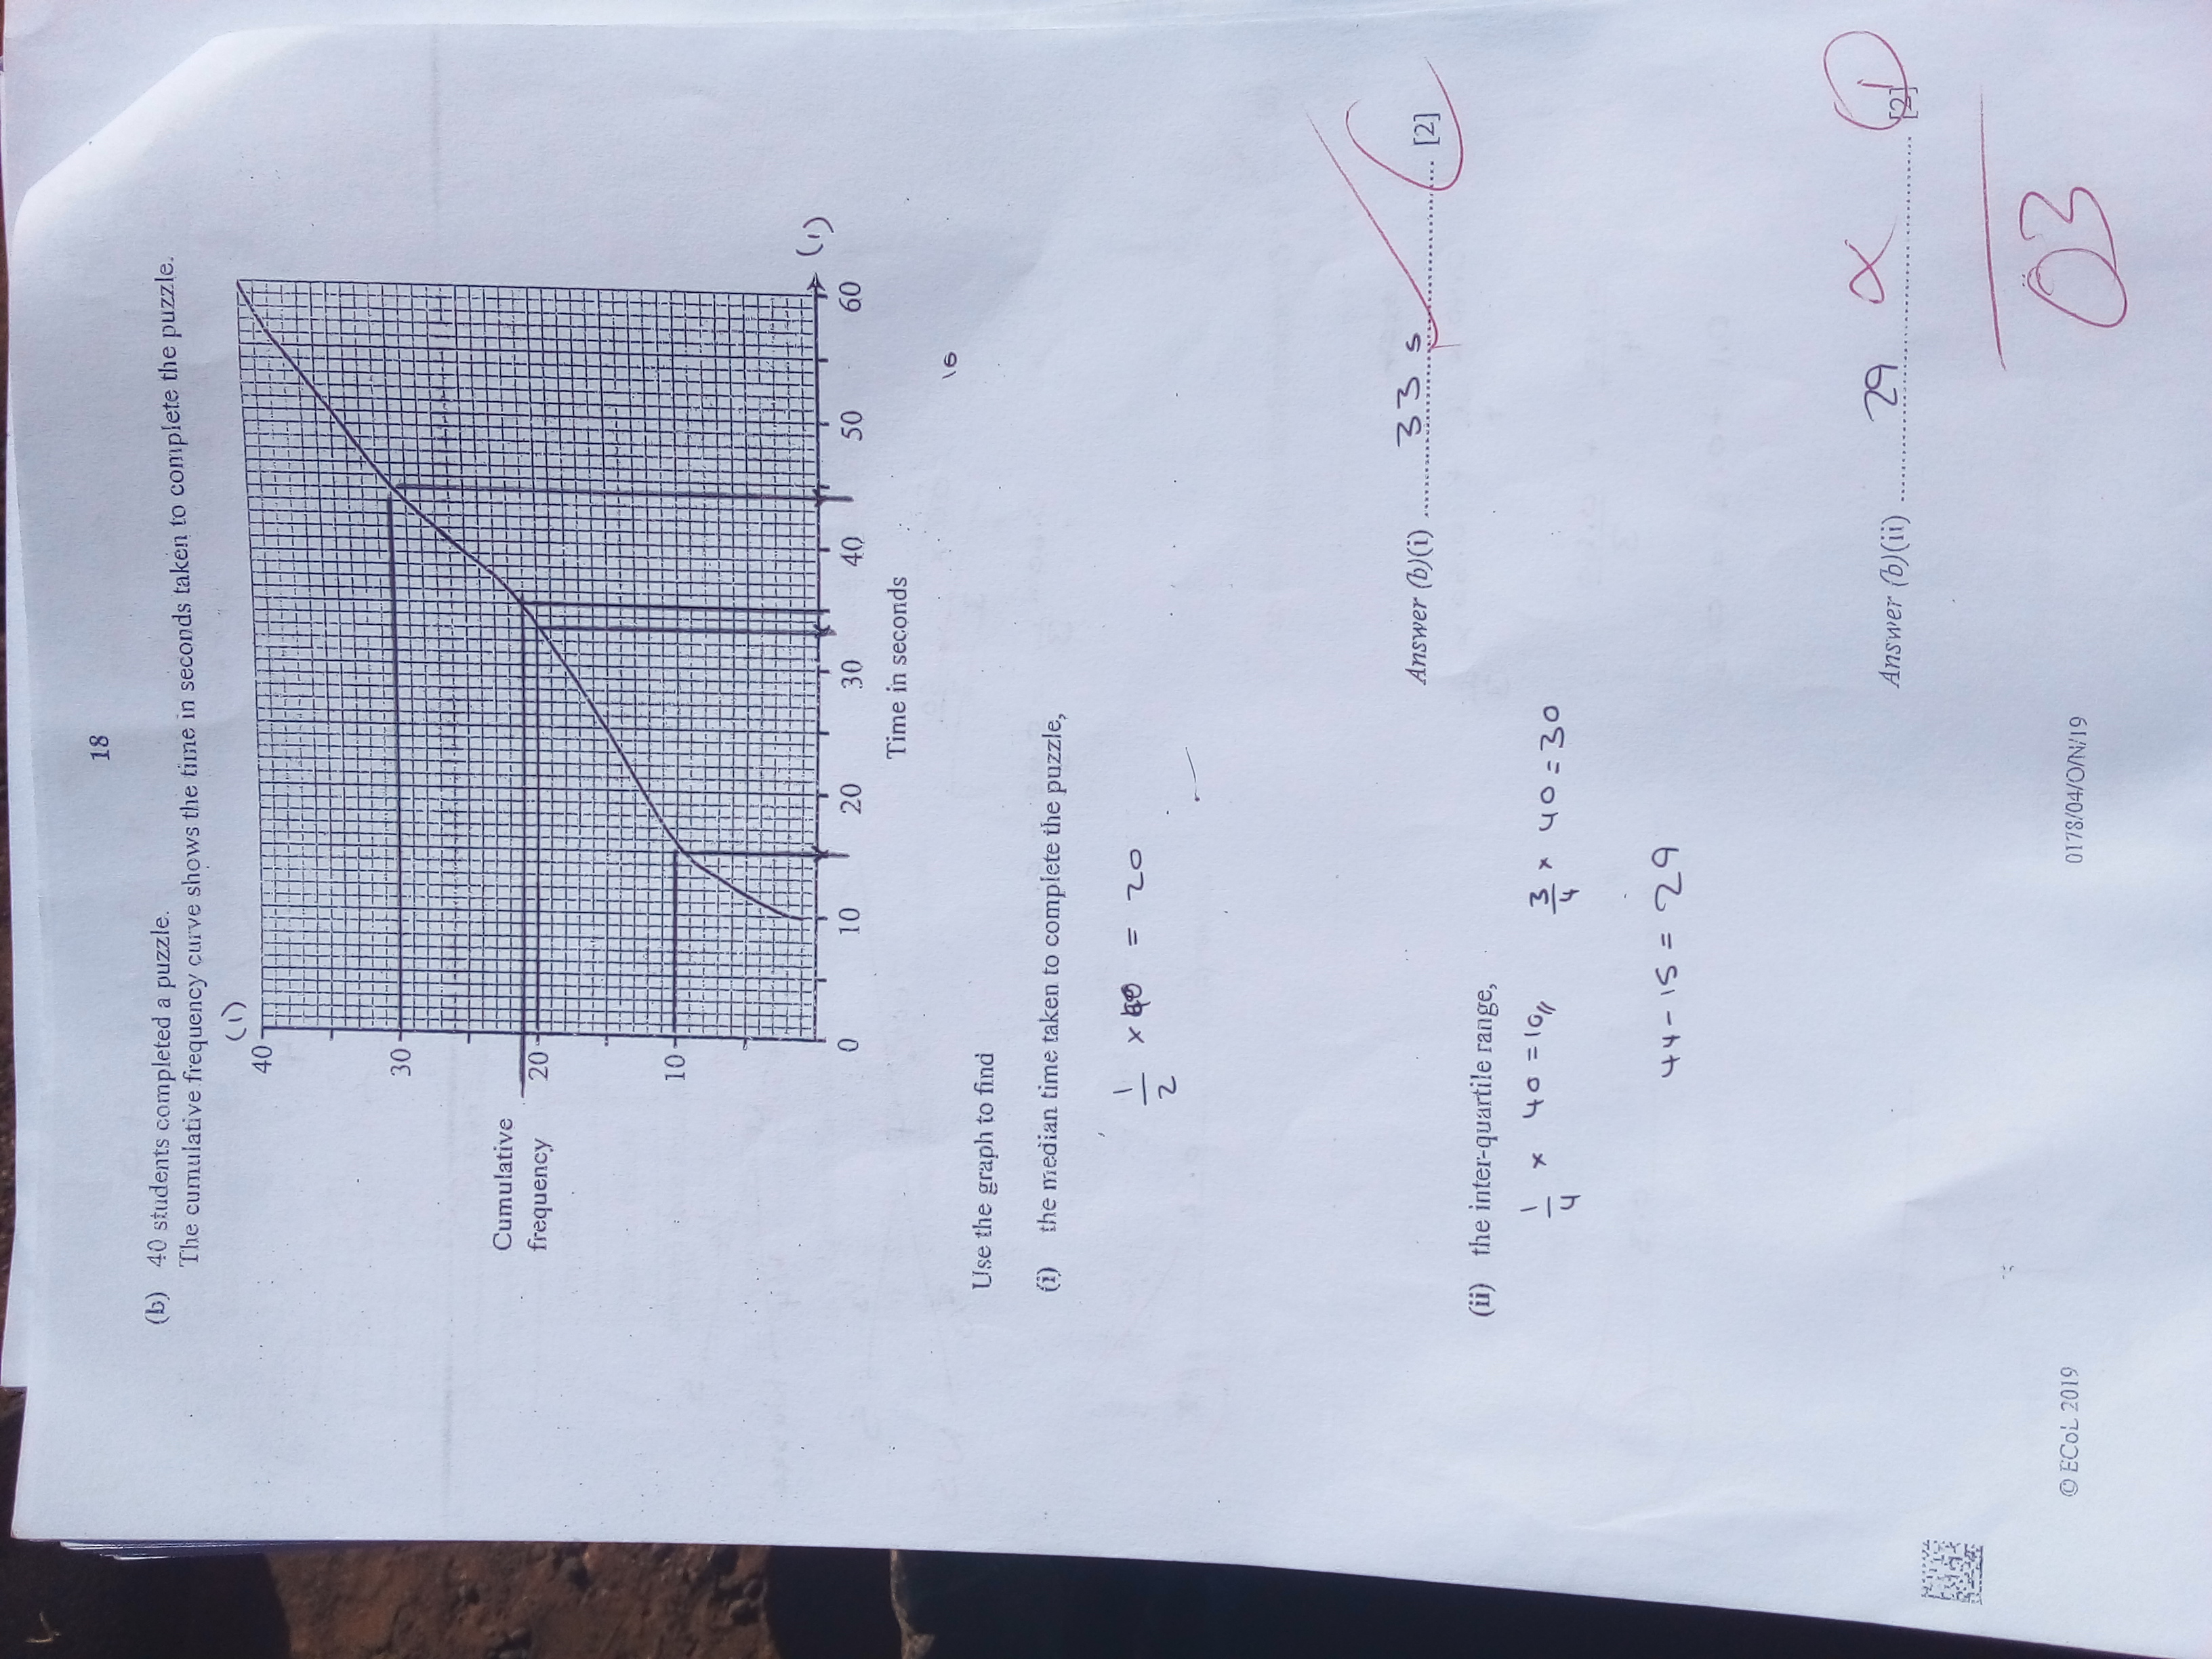 18
(b) 40 students completed a puzzle.
The cumulative frequency curve shows the time in seconds taken to complete the puzzle.
(1)
40
30
Cumulative
frequency
20
10
(1)
0 10 20 30 40 50 60
Time in seconds
16
Use the graph to find
(i) the median time taken to complete the puzzle,
1/2 × 40 = 20
Answer (b)(i) 33 s [2]
(ii) the inter-quartile range,
1/4 × 40 = 10 3/4 × 40 = 30
44 - 15 = 29
Answer (b)(ii) 29 [2] 1
03
© ECoL 2019 0178/04/O/N/19